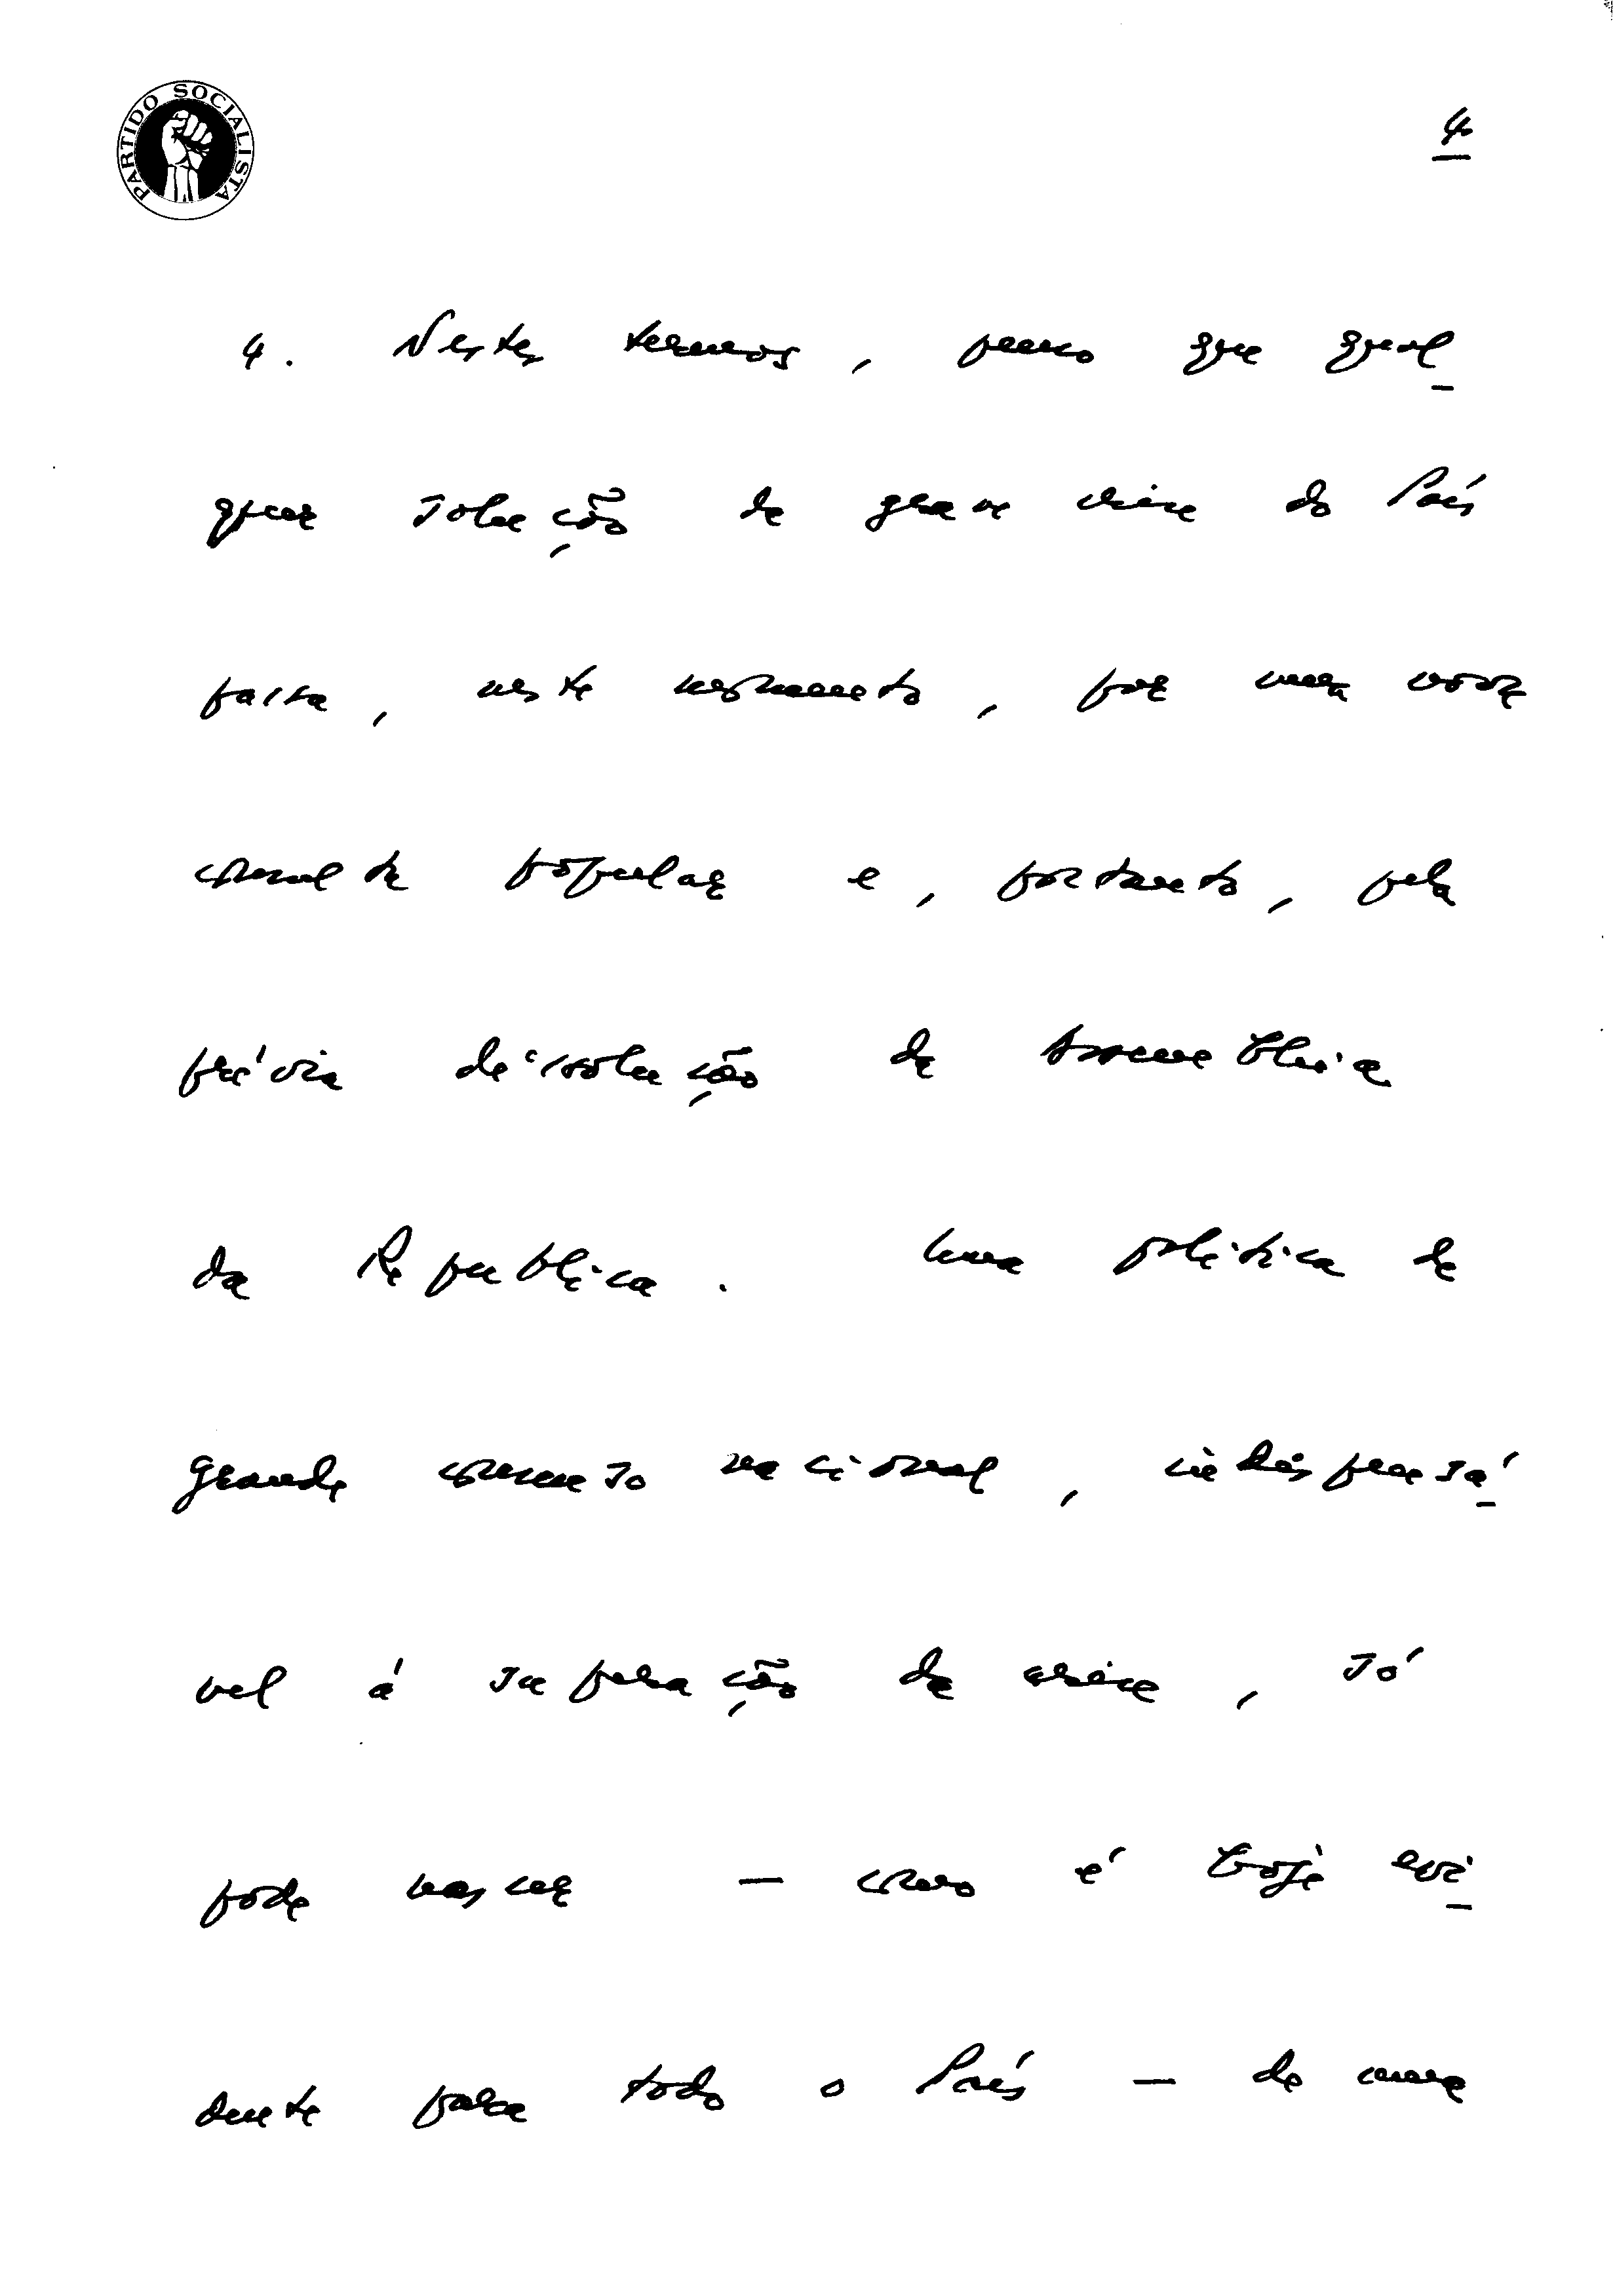 PARTIDO SOCIALISTA
4
4. Nestes termos, penso que qual-
quer solução da grave crise do País
passa, neste momento, por uma nova
consulta popular e, portanto, pela
prévia dissolução da Assembleia
da República. Uma política de
grande consenso nacional, indispensá-
vel á superação da crise, só
pode nascer — como é hoje evi-
dente para todo o País — de uma